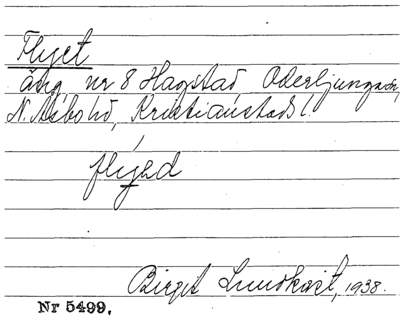 Flyet
äng nr 8 Hagstad Oderljunga sn,
N. Åsbo hd, Kristianstads l.
flýəd
Birgit Lundkvist, 1938.
Nr 5499.